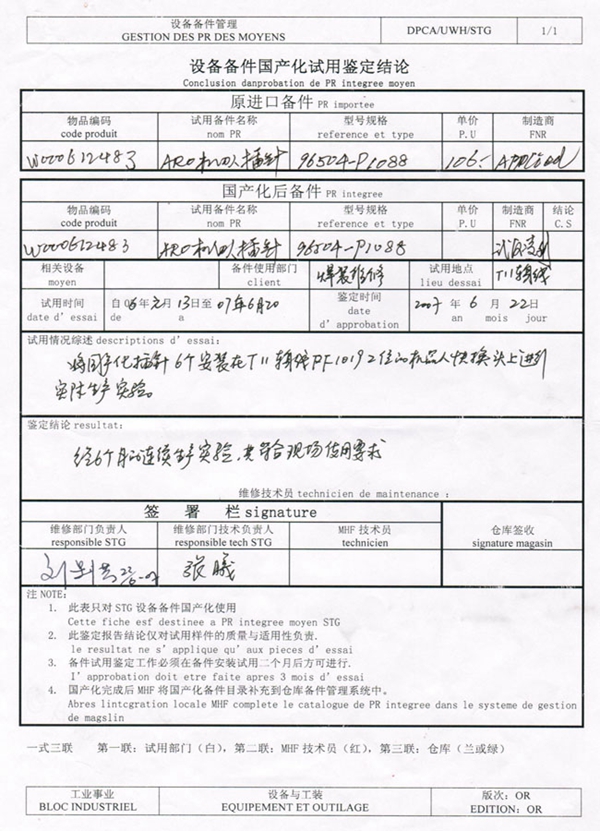 设备备件管理
GESTION DES PR DES MOYENS
DPCA/UWH/STG
1/1
设备备件国产化试用鉴定结论
Conclusion danprobation de PR integree moyen
原进口备件 PR importee
物品编码 试用备件名称 型号规格 单价 制造商
code produit nom PR reference et type P.U FNR
W000612483 ARO机器人插针 96504-P1088 106.-
国产化后备件 PR integree
物品编码 试用备件名称 型号规格 单价 制造商 结论
code produit nom PR reference et type P.U FNR C.S
W000612483 ARO机器人插针 96504-P1088 武汉
相关设备 备件使用部门 焊装维修 试用地点 T11辅线
moyen client lieu dessai
试用时间 自06年元月13日至07年6月20 鉴定时间 2007年6月22日
date d'essai de a date d'approbation an mois jour
试用情况综述 descriptions d'essai:
将国产化插针6个安装在T11辅线PF10192位的机器人快换头上进行
实际生产实验。
鉴定结论 resultat:
经6个月的连续生产实验,其符合现场使用要求
维修技术员 technicien de maintenance :
签署栏 signature
维修部门负责人 维修部门技术负责人 MHF 技术员 仓库签收
responsible STG responsible tech STG technicien signature magasin
张曦
注 NOTE:
1. 此表只对 STG 设备备件国产化使用
Cette fiche esf destinee a PR integree moyen STG
2. 此鉴定报告结论仅对试用样件的质量与适用性负责.
le resultat ne s'applique qu'aux pieces d'essai
3. 备件试用鉴定工作必须在备件安装试用二个月后方可进行.
l'approbation doit etre faite apres 3 mois d'essai
4. 国产化完成后 MHF 将国产化备件目录补充到仓库备件管理系统中。
Abres lintcgration locale MHF complete le catalogue de PR integree dans le systeme de gestion
de magslin
一式三联 第一联：试用部门（白），第二联：MHF 技术员（红），第三联：仓库（兰或绿）
工业事业 设备与工装 版次：OR
BLOC INDUSTRIEL EQUIPEMENT ET OUTILAGE EDITION: OR